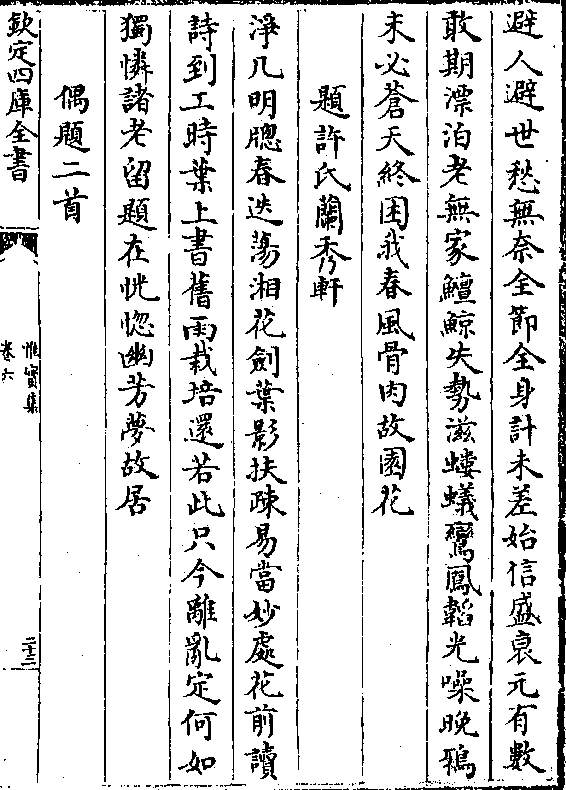 避人避世愁無奈全節全身計未差始信盛衰元有數
敢期漂泊老無家鱣鯨失勢滋螻蟻鸞鳳韜光噪晚鴉
未必蒼天終困我春風骨肉故園花
題許氏蘭秀軒
淨几明牕春迭蕩湘花劍葉影扶疎易當妙處花前讀
詩到工時葉上書舊雨栽培還若此只今離亂定何如
獨憐諸老留題在恍惚幽芳夢故居
偶題二首
欽定四庫全書
惟實集
卷六
二十三